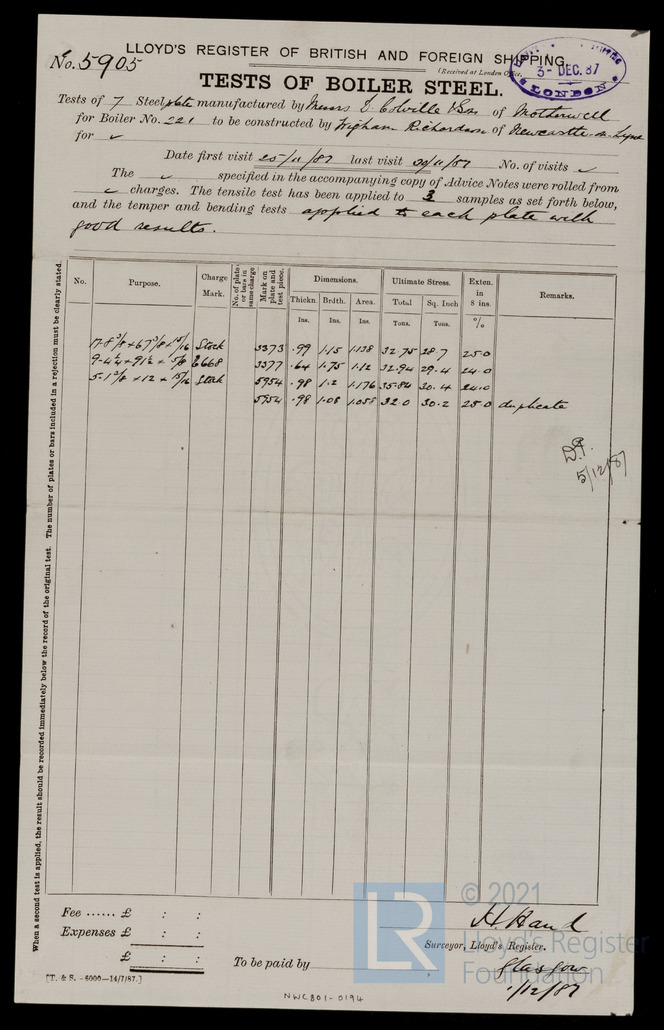 LLOYD'S REGISTER OF BRITISH AND FOREIGN SHIPPING.
No. 5905
(Received at London Office,
3- DEC. 87
LONDON
TESTS OF BOILER STEEL.
Tests of 7 Steel plate manufactured by Messrs D. Colville & Son of Motherwell
for Boiler No. 221 to be constructed by Wigham Richardson of Newcastle-on-Tyne
for ✓
Date first visit 25/11/87 last visit 29/11/87 No. of visits ✓
The ✓ specified in the accompanying copy of Advice Notes were rolled from
✓ charges. The tensile test has been applied to 3 samples as set forth below,
and the temper and bending tests applied to each plate with
good results.
When a second test is applied, the result should be recorded immediately below the record of the original test. The number of plates or bars included in a rejection must be clearly stated.
No. Purpose. Charge Mark. No. of plates or bars in same charge Mark on plate and test piece. Dimensions. Ultimate Stress. Exten. in 8 ins. Remarks.
Thickn. Brdth. Area. Total Sq. Inch
Ins. Ins. Ins. Tons. Tons. %
17-8 3/8 + 67 3/8 + 15/16 Stock 3373 .99 1.15 1.138 32.75 28.7 25.0
9-4 1/4 + 91 1/2 + 5/8 6668 3377 .64 1.75 1.12 32.94 29.4 24.0
5-1 3/8 + 12 + 15/16 Stock 5954 .98 1.2 1.176 35.84 30.4 24.0
5954 .98 1.08 1.058 32.0 30.2 25.0 duplicate
5/12/87
Fee ...... £ : :
Expenses £ : :
£ : :
To be paid by
H. Hand
Surveyor, Lloyd's Register.
Glasgow
1/12/87
[T. & S. - 6000-14/7/87.]
NWC801-0194
LR
© 2021
Lloyd's Register
Foundation